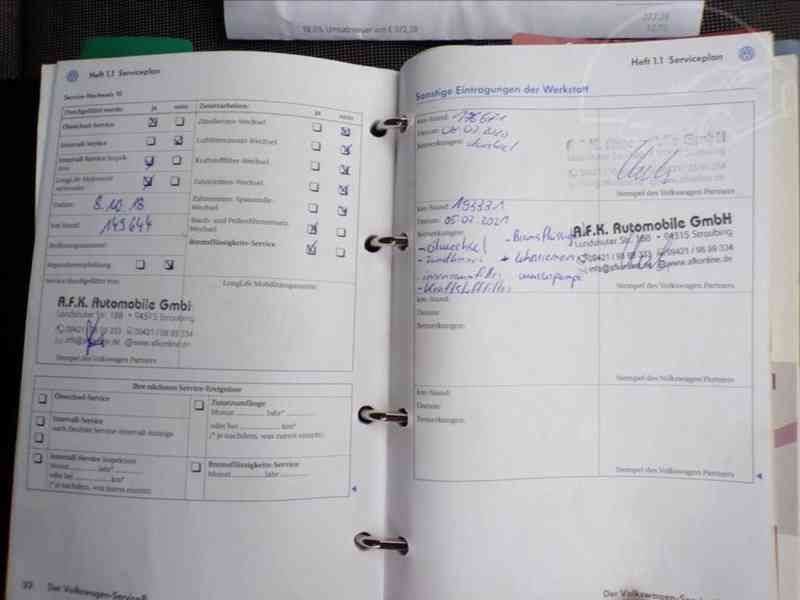 19,0% Umsatzsteuer am € 372,28
372,28
Heft 1.1 Serviceplan
Service-Nachweis 10
Durchgeführt wurde: ja nein
Ölwechsel-Service
Intervall-Service
Intervall-Service
LongLife Motorenöl
verwendet
Datum: 8.10.18
km-Stand: 149644
Zusatzarbeiten: ja nein
Zündkerzen-Wechsel
Luftfiltereinsatz-Wechsel
Kraftstofffilter-Wechsel
Zahnriemen-Wechsel
Zahnriemen-Spannrolle-
Wechsel
Staub- und Pollenfiltereinsatz-
Wechsel
Bremsflüssigkeits-Service
Reparaturempfehlung
Service durchgeführt von:
LongLife Mobilitätsgarantie
A.F.K. Automobile GmbH
Landshuter Str. 188 • 94315 Straubing
09421 / 98 99 333 09421 / 98 99 334
info@afkonline.de @www.afkonline.de
Stempel des Volkswagen Partners
Ihre nächsten Service-Ereignisse
Ölwechsel-Service
Intervall-Service
nach flexibler Service-Intervall-Anzeige
Intervall-Service
Monat Jahr*
oder bei km*
(* je nachdem, was zuerst eintritt)
Zusatzumfänge
Monat Jahr*
oder bei km*
(* je nachdem, was zuerst eintritt)
Bremsflüssigkeits-Service
Monat Jahr
Der Volkswagen-Service
Heft 1.1 Serviceplan
Sonstige Eintragungen der Werkstatt
km-Stand: 176671
Datum:
Bemerkungen:
Stempel des Volkswagen Partners
km-Stand: 193331
Datum: 05.02.2021
Bemerkungen:
- Ölwechsel
- Zündkerzen
- Innenraumfilter
- Kraftstofffilter
- Bremsflüssigkeit
+ Zahnriemen
Wasserpumpe
A.F.K. Automobile GmbH
Landshuter Str. 188 • 94315 Straubing
09421 / 98 99 334
info@afkonline.de @www.afkonline.de
Stempel des Volkswagen Partners
km-Stand:
Datum:
Bemerkungen:
Stempel des Volkswagen Partners
km-Stand:
Datum:
Bemerkungen:
Stempel des Volkswagen Partners
Der Volkswagen-Service